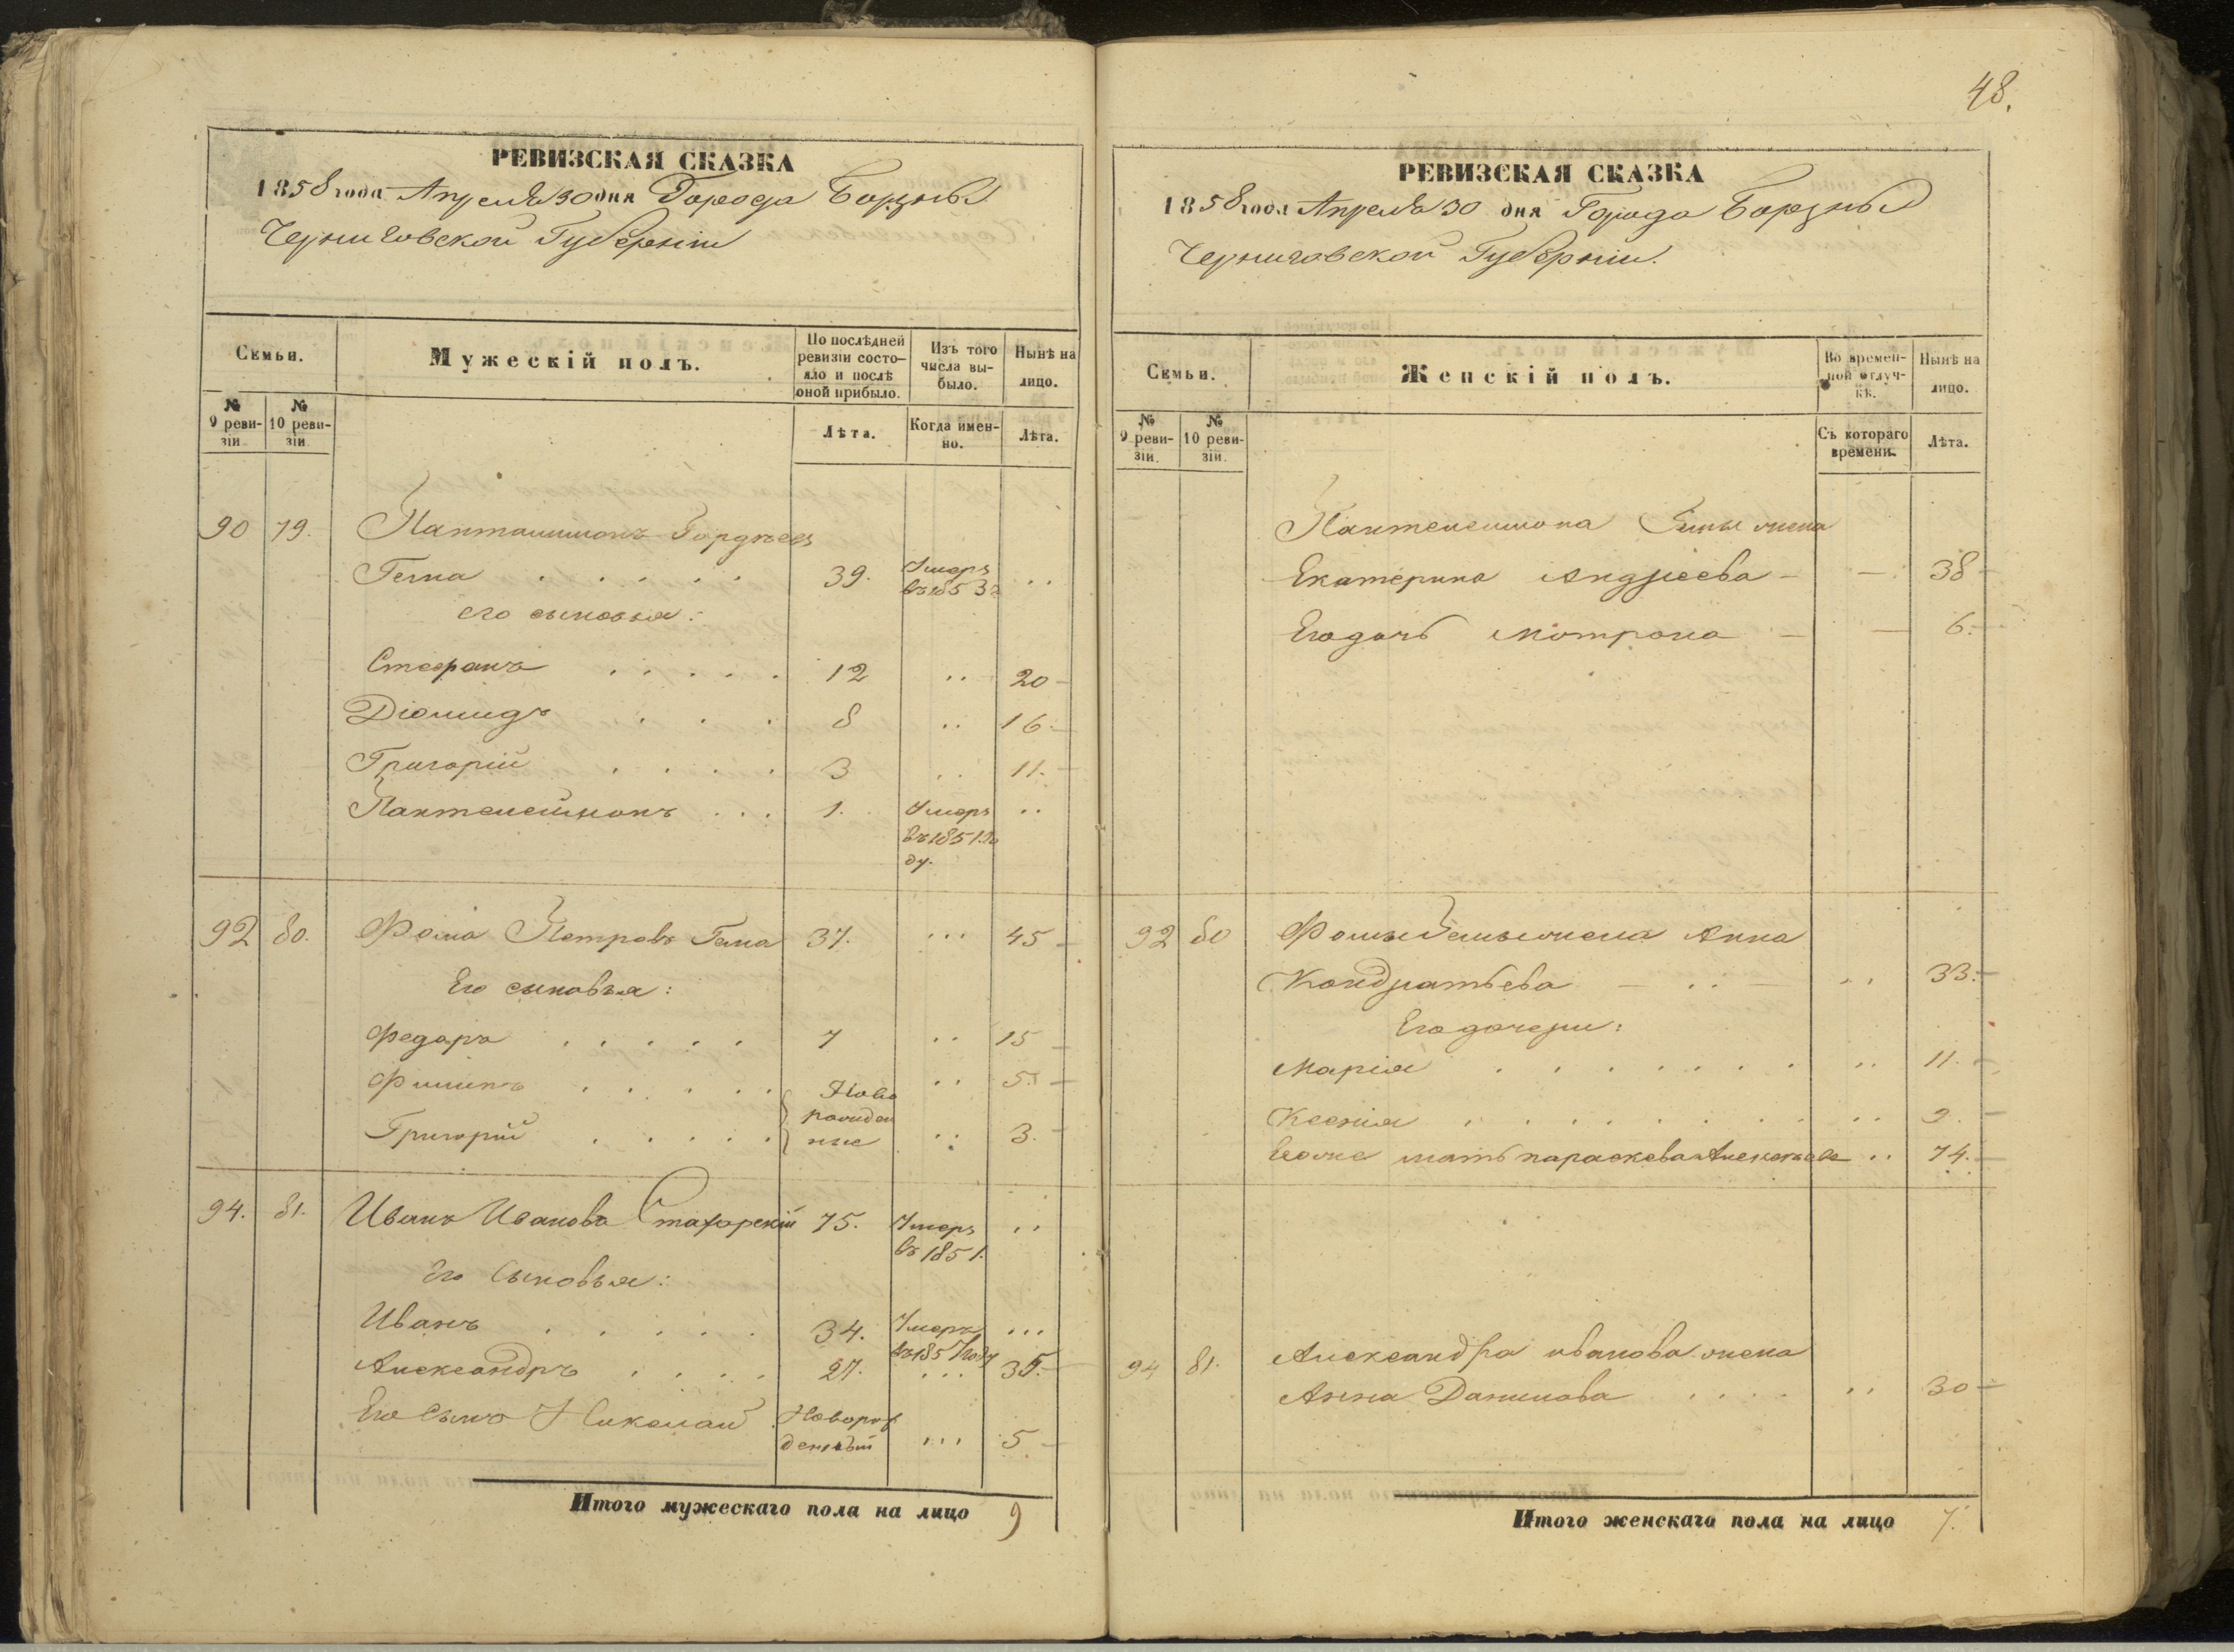 48.
РЕВИЗСКАЯ СКАЗКА
1858 года Апреля 30 дня Города Борзны
Черниговской Губерніи
Семьи.
Мужескій полъ.
По послѣдней ревизіи состо-
яло и послѣ оной прибыло.
Изъ того числа вы-
было.
Нынѣ на лицо.
№ 9 реви-
зіи.
№ 10 реви-
зіи
Лѣта.
Когда имен-
но.
Лѣта.
90 79. Гордѣевъ
Гема 39. Умеръ ..
въ 1853 г
его сыновья:
Стефанъ 12 .. 20
Діомидъ 8 .. 16.
Григорій 3 .. 11.
Пантелеймонъ 1. Умеръ ..
въ 1851 го
ду.
92 80. Фома Петровъ Гема 37. ... 45
Его сыновья:
Федоръ 7 .. 15
Филипъ Ново .. 5.
рожден
Григорій ные .. 3.
94. 81. Иванъ Ивановъ 75. Умеръ ..
въ 1851.
Его Сыновья:
Иванъ 34. Умеръ ...
въ 1857 году
Александръ 27. ... 35.
Его Сынъ Николай Новорож
денный ... 5
Итого мужескаго пола на лицо 9
РЕВИЗСКАЯ СКАЗКА
1858 года Апреля 30 дня Города Борзны
Черниговской Губерніи.
Семьи.
Женскій полъ.
Во времен-
ной отлуч-
кѣ.
Нынѣ на лицо.
№ 9 реви-
зіи.
№ 10 реви-
зіи.
Съ котораго времени.
Лѣта.
Пантелеимона Гемы жена
Екатерина Андреева — — 38
Его дочь Мотрона — — 6.
92 80 Фомы Гемы жена Анна
Кондратьева — .. — .. 33.
Его дочери:
Марія .. 11.
Ксенія .. 9.
Его же мать Параскева Алексѣева .. 74.
94 81. Александра Иванова жена
Анна Данилова .. 30
Итого женскаго пола на лицо 7.